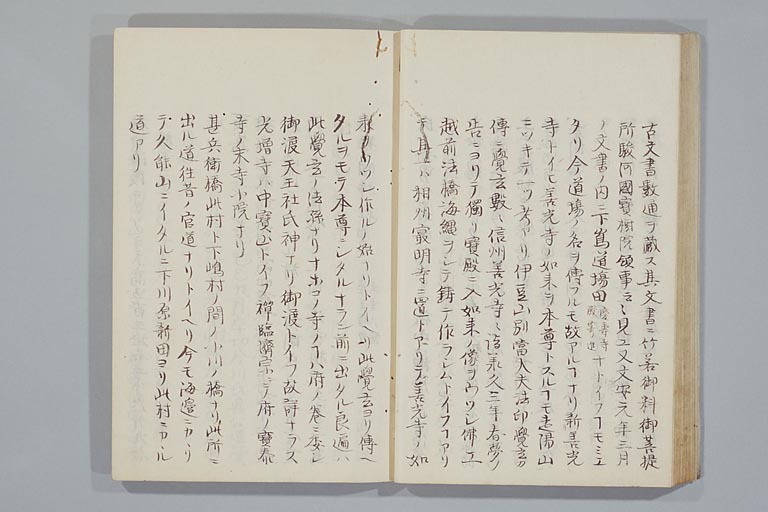 古文書數通ヲ蔵ス其文書ニ竹若御料御菩提
所駿河國寶樹院領事云々ト見ユ又文安元年三月
ノ文書ノ内ニ下嶌道場田 慶寿寺 殿寄進 ナトイフコモミエ
タリ今道場ノ名ヲ傳フルモ故アルコナリ新善光
寺トイモ善光寺ノ如来ヲ本尊トスルコモ走湯山
ニツキテ一ツ考アリ伊豆山別當大夫法印覺玄カ
傳ニ覺玄數々信州善光寺ニ詣承久三年春夢ノ
告ニヨリテ獨リ寶殿ニ入如来ノ像ヲウツシ佛工
越前法橋海縁ヲシテ鋳テ作ラシムトイフコアリ
テ其一ハ相州最明寺ニ置トアリテ善光寺ハ如
来ヲウツシ作ルノ始ナリトイヘリ此覺玄ヨリ傳ヘ
タルヲモテ本尊ニシタルナラン前ニ出タル良遍ハ
此覺玄ノ法孫ナリナホコノ寺ノコハ府ノ巻ニ委シ
御渡天王社氏神ナリ御渡トイフ故詳ナラス
光増寺ハ中寶山トイフ禪臨濟宗ニテ府ノ寶泰
寺ノ末寺小院ナリ
甚兵衛橋此村ト下嶋村ノ間ノ小川ノ橋ナリ此所ニ
出ル道往昔ノ官道ナリトイヘリ今モ海邉ニカヽリ
テ久能山ニイタルニ下川原新田ヨリ此村ニカヽル
道アリ